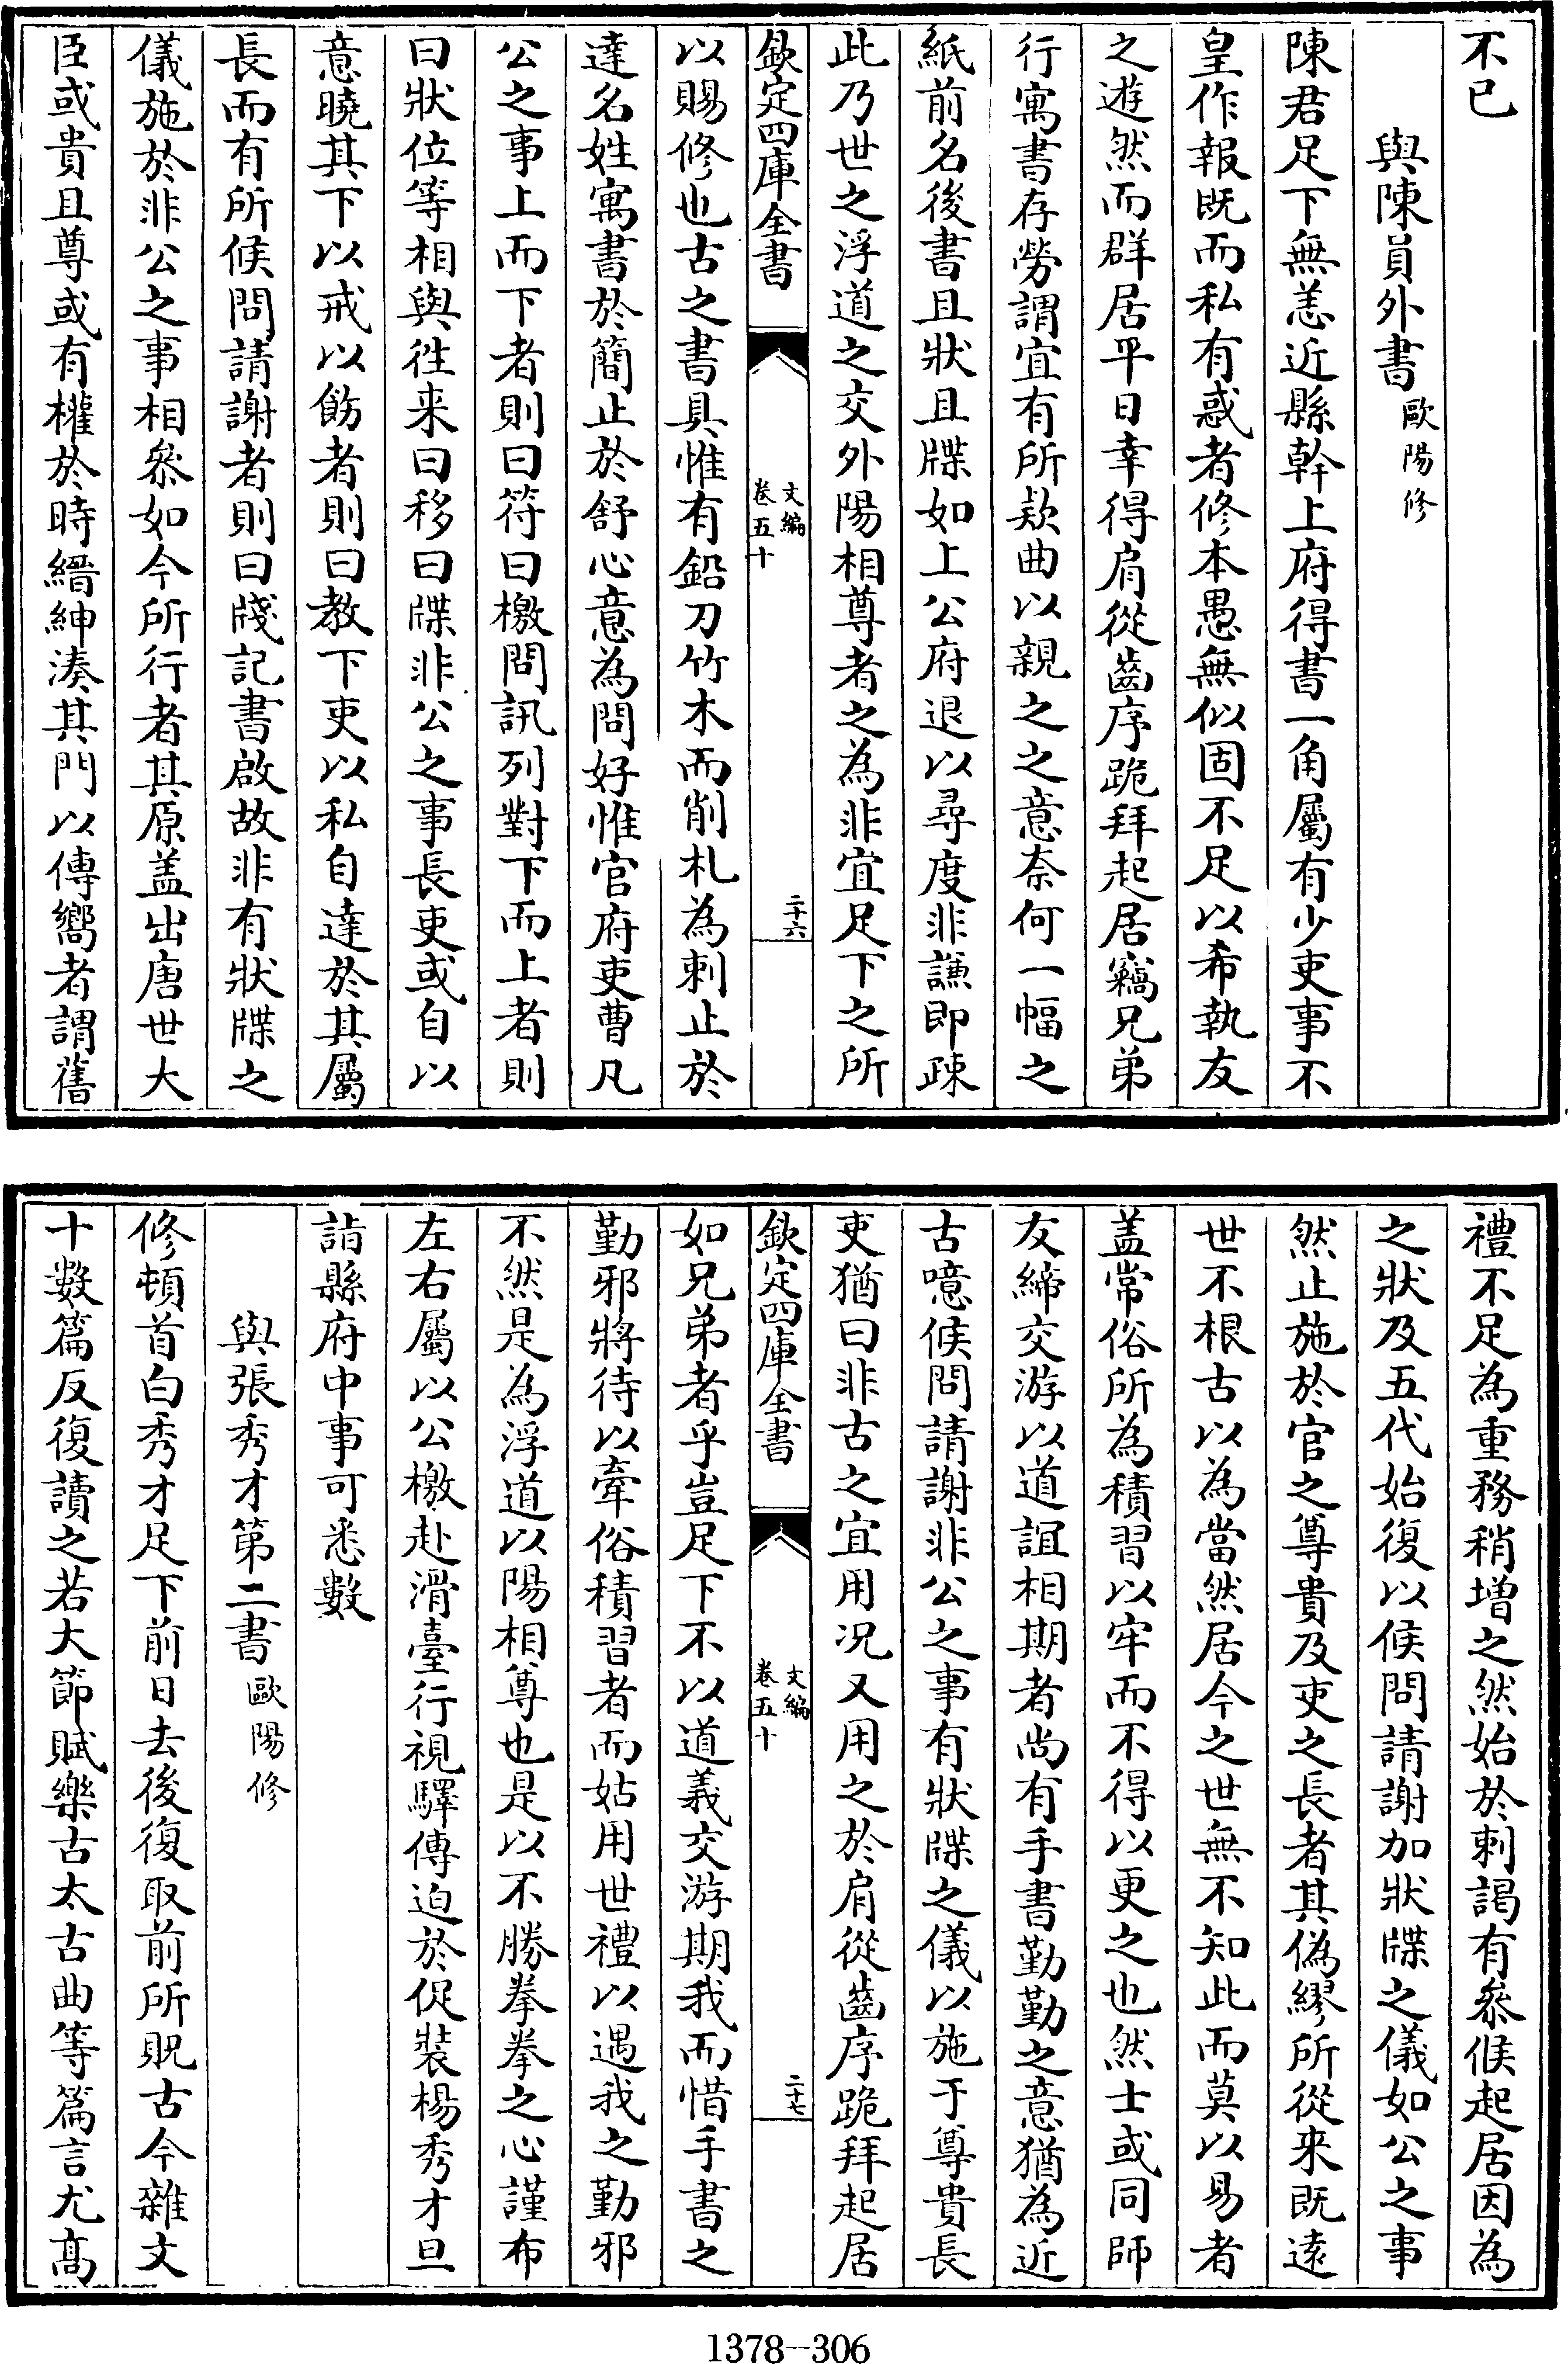 不已
與陳員外書歐陽修
陳君足下無恙近縣幹上府得書一角屬有少吏事不
皇作報既而私有惑者修本愚無似固不足以希執友
之遊然而群居平日幸得肩從齒序跪拜起居竊兄弟
行寓書存勞謂宜有所欵曲以親之之意奈何一幅之
紙前名後書且狀且牒如上公府退以尋度非謙即疎
此乃世之浮道之交外陽相尊者之為非宜足下之所
欽定四庫全書
文編
卷五十
二十六
以賜修也古之書具惟有鉛刀竹木而削札為刺止於
達名姓寓書於簡止於舒心意為問好惟官府吏曹凡
公之事上而下者則曰符曰檄問訊列對下而上者則
曰狀位等相與徃来曰移曰牒非公之事長吏或自以
意曉其下以戒以飭者則曰教下吏以私自達於其屬
長而有所候問請謝者則曰牋記書啟故非有狀牒之
儀施於非公之事相叅如今所行者其原盖出唐世大
臣或貴且尊或有權於時縉紳湊其門以傳嚮者謂舊
禮不足為重務稍增之然始於刺謁有叅候起居因為
之狀及五代始復以候問請謝加狀牒之儀如公之事
然止施於官之尊貴及吏之長者其偽繆所從来既遠
世不根古以為當然居今之世無不知此而莫以易者
盖常俗所為積習以牢而不得以更之也然士或同師
友締交游以道誼相期者尚有手書勤勤之意猶為近
古噫候問請謝非公之事有狀牒之儀以施于尊貴長
吏猶曰非古之宜用况又用之於肩從齒序跪拜起居
欽定四庫全書
文編
卷五十
二十七
如兄弟者乎豈足下不以道義交游期我而惜手書之
勤邪將待以牽俗積習者而姑用世禮以遇我之勤邪
不然是為浮道以陽相尊也是以不勝拳拳之心謹布
左右屬以公檄赴滑臺行視驛傳迫於促裝楊秀才旦
詣縣府中事可悉數
與張秀才第二書歐陽修
修頓首白秀才足下前日去後復取前所貺古今雜文
十數篇反復讀之若大節賦樂古太古曲等篇言尤髙
1378-306